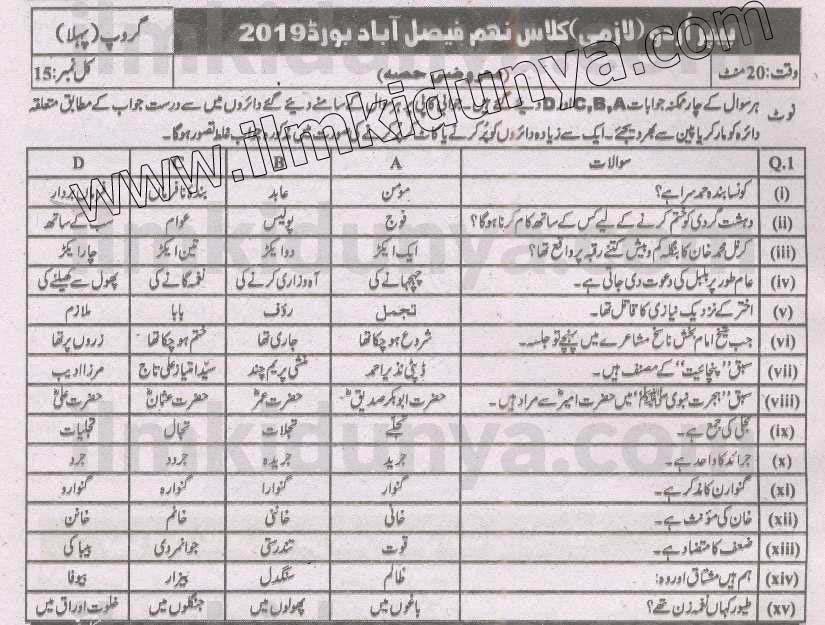 پیپر اُردو (لازمی) کلاس نہم فیصل آباد بورڈ 2019 گروپ (پہلا)
وقت: 20 منٹ (معروضی حصہ) کل نمبر: 15
نوٹ ہر سوال کے چار ممکنہ جوابات A،B،C اور D دیئے گئے ہیں۔ جوابی کاپی پر ہر سوال کے سامنے دیئے گئے دائروں میں سے درست جواب کے مطابق متعلقہ
دائرہ کو مارکر یا پین سے بھر دیجئے۔ ایک سے زیادہ دائروں کو پُر کرنے یا کاٹ کر پُر کرنے کی صورت میں مذکورہ جواب غلط تصور ہوگا۔
Q.1 سوالات A B C D
(i) کونسا بندہ حمد سرا ہے؟ مومن عابد بندہ نافرماں فرماں بردار
(ii) دہشت گردی کو ختم کرنے کے لیے کس کے ساتھ کام کرنا ہوگا؟ فوج پولیس عوام سب کے ساتھ
(iii) کرنل محمد خان کا بنگلہ کم و بیش کتنے رقبہ پر واقع تھا؟ ایک ایکڑ دو ایکڑ تین ایکڑ چار ایکڑ
(iv) عام طور پر بلبل کی دعوت دی جاتی ہے۔ چہچہانے کی آہ وزاری کرنے کی نغمہ گانے کی پھول سے کھیلنے کی
(v) اختر کے نزدیک نیازی کا قاتل تھا۔ تجمل رؤف بابا ملازم
(vi) جب شیخ امام بخش ناسخ مشاعرے میں پہنچے تو جلسہ۔ شروع ہو چکا تھا جاری تھا ختم ہو چکا تھا زوروں پر تھا
(vii) سبق "پنچائیت" کے مصنف ہیں۔ ڈپٹی نذیر احمد منشی پریم چند سیّد امتیاز علی تاج مرزا ادیب
(viii) سبق "ہجرت نبوی ﷺ" میں حضرت امیرؓ سے مراد ہیں۔ حضرت ابوبکر صدیقؓ حضرت عمرؓ حضرت عثمانؓ حضرت علیؓ
(ix) تجلی کی جمع ہے۔ تجلّے تجلات تجال تجلیات
(x) جرائد کا واحد ہے۔ جرید جریدہ جرود جرد
(xi) گنوارن کا مذکر ہے۔ گنوار گنوارا گنوارہ گنوارو
(xii) خان کی مؤنث ہے۔ خالی خانی خانم خانن
(xiii) ضعف کا متضاد ہے۔ قوت تندرستی جوانمردی بیباکی
(xiv) ہم ہیں مشتاق اور وہ: ظالم سنگدل بیزار بیوفا
(xv) طیور کہاں نغمہ زن تھے؟ باغوں میں پھولوں میں جنگلوں میں خلوت اوراق میں
www.ilmkidunya.com
ilmkidunya.com
ilmkidunya.com
ilmkidunya.com